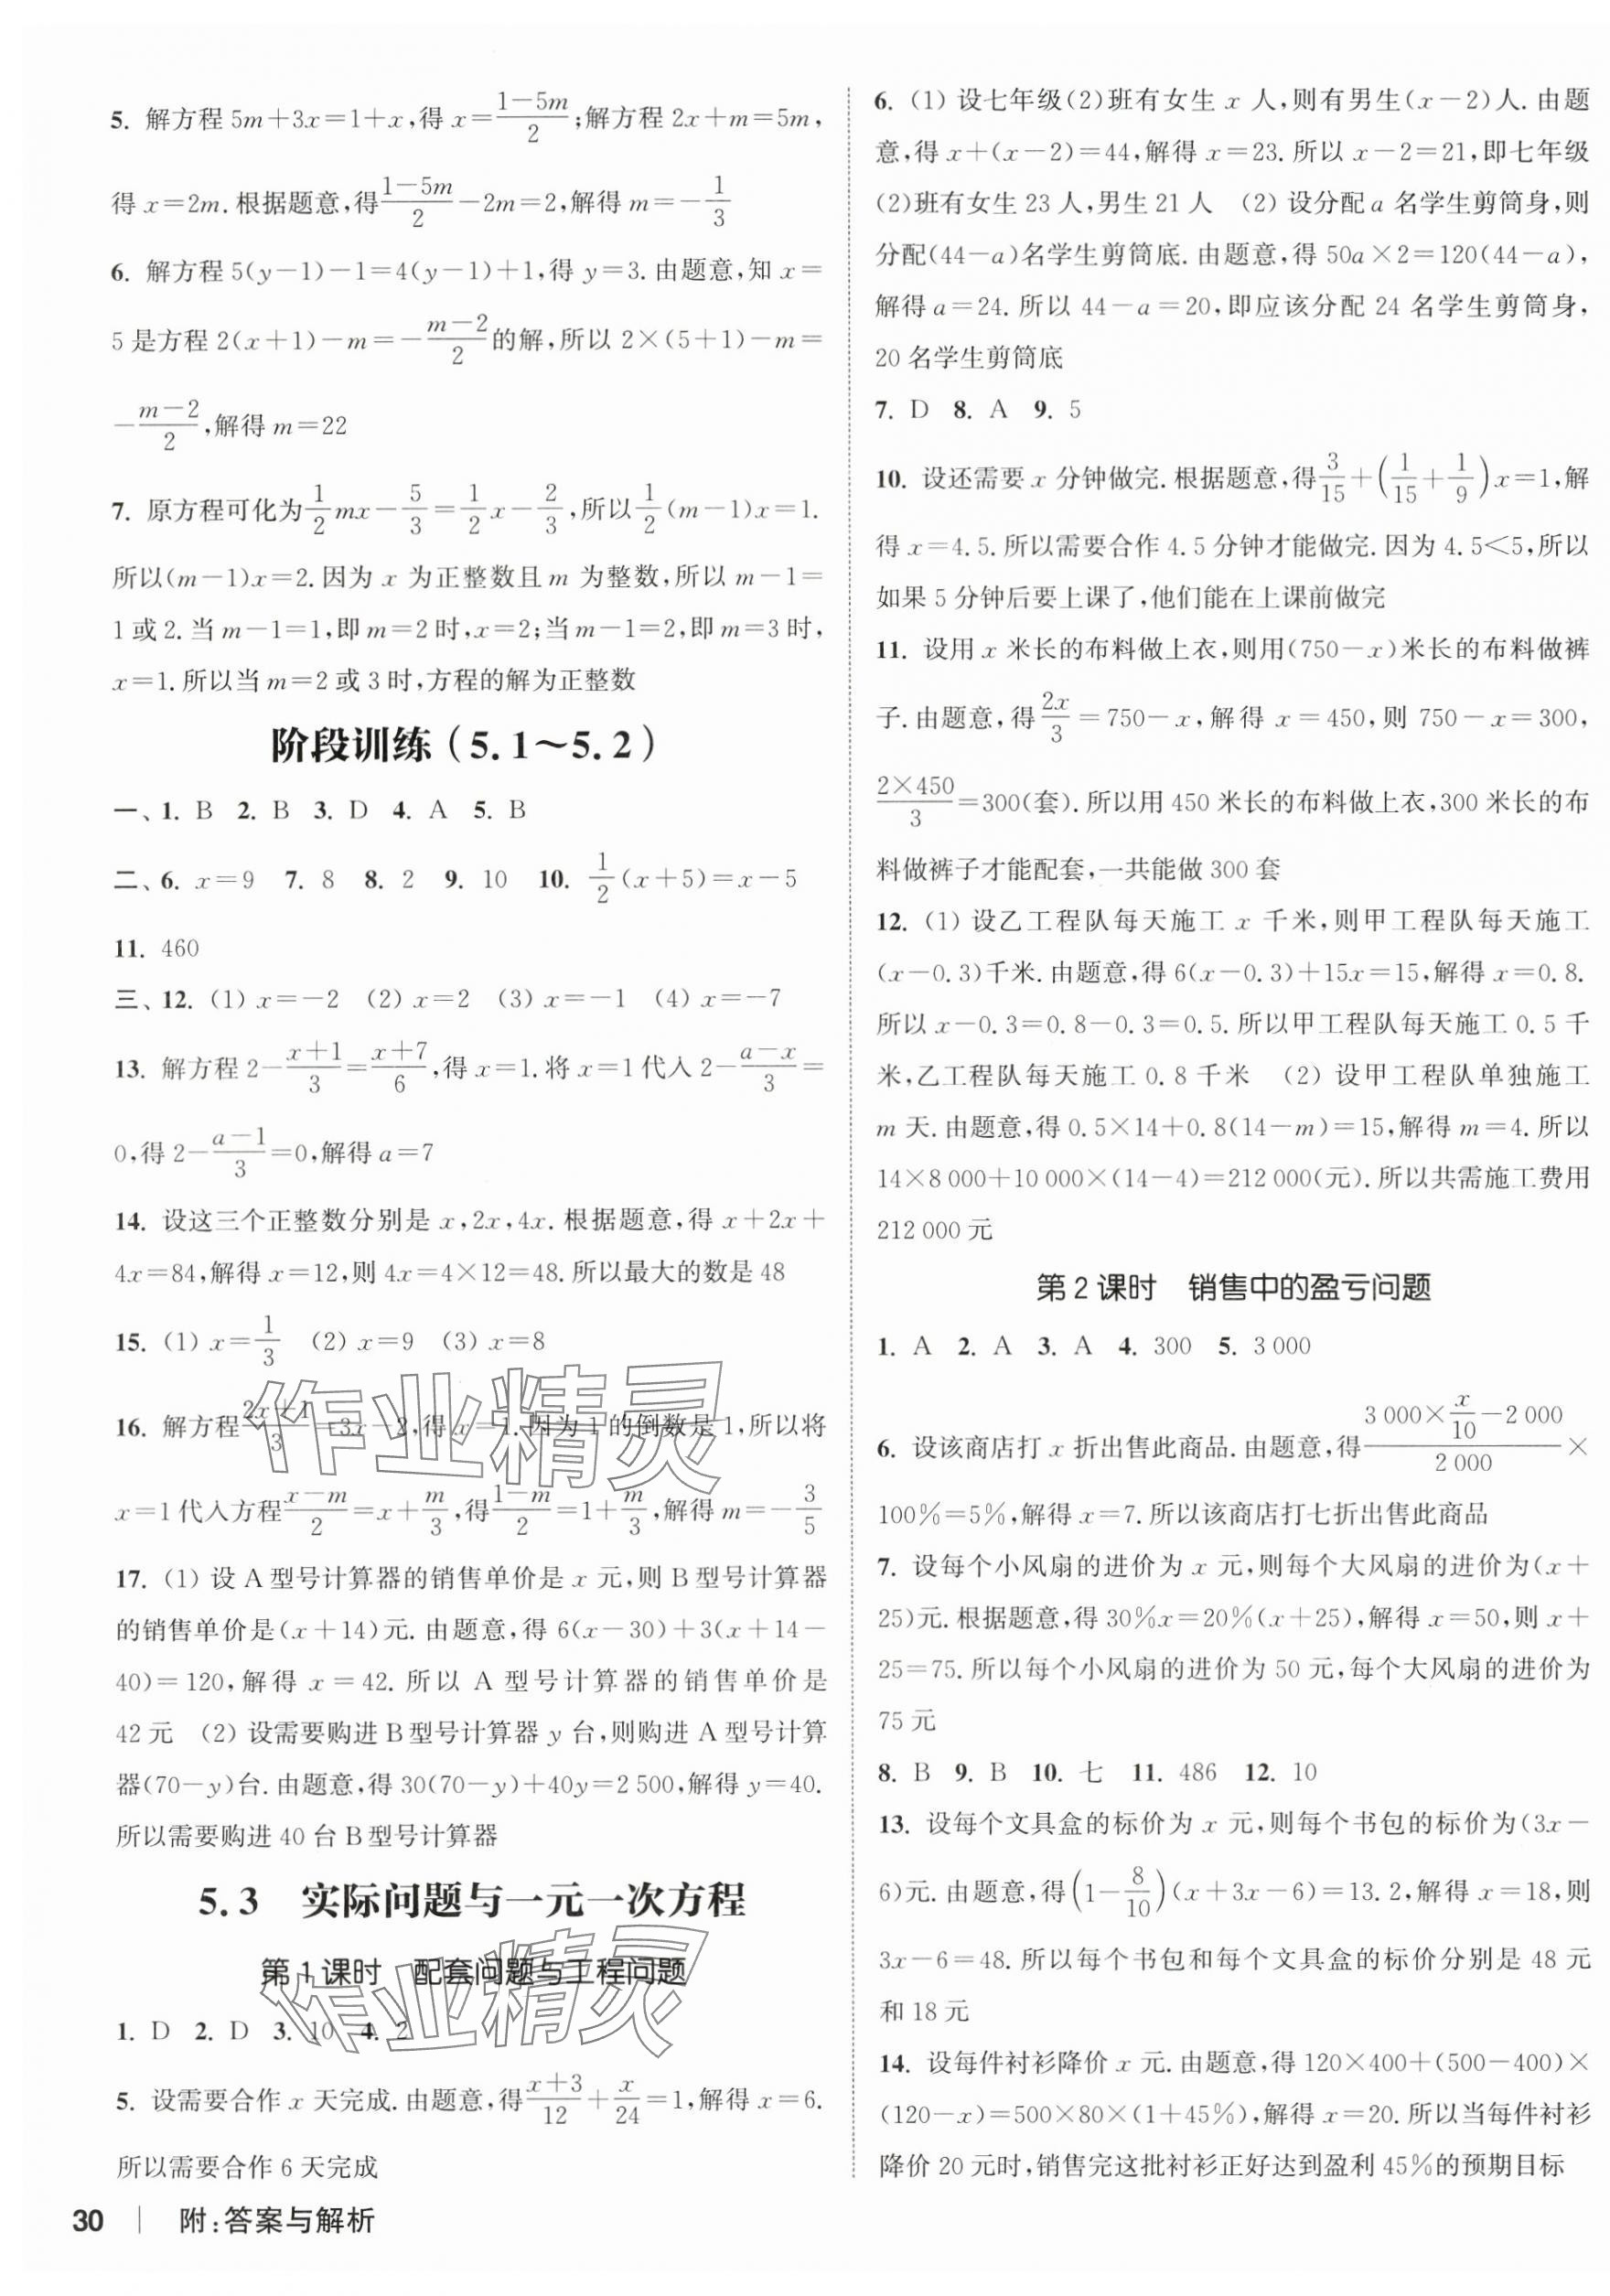 5. 解方程 5m+3x=1+x,得 x=\frac{1-5m}{2};解方程 2x+m=5m,
得 x=2m. 根据题意,得\frac{1-5m}{2}-2m=2,解得 m=-\frac{1}{3}
6. 解方程 5(y-1)-1=4(y-1)+1,得 y=3. 由题意,知 x=
5 是方程 2(x+1)-m=-\frac{m-2}{2}的解,所以 2×(5+1)-m=
-\frac{m-2}{2},解得 m=22
7. 原方程可化为\frac{1}{2}mx-\frac{5}{3}=\frac{1}{2}x-\frac{2}{3},所以\frac{1}{2}(m-1)x=1.
所以(m-1)x=2. 因为 x 为正整数且 m 为整数,所以 m-1=
1 或 2. 当 m-1=1,即 m=2 时,x=2;当 m-1=2,即 m=3 时,
x=1. 所以当 m=2 或 3 时,方程的解为正整数
阶段训练(5.1～5.2)
一、1. B 2. B 3. D 4. A 5. B
二、6. x=9 7. 8 8. 2 9. 10 10. \frac{1}{2}(x+5)=x-5
11. 460
三、12. (1) x=-2 (2) x=2 (3) x=-1 (4) x=-7
13. 解方程 2-\frac{x+1}{3}=\frac{x+7}{6},得 x=1. 将 x=1 代入 2-\frac{a-x}{3}=
0,得 2-\frac{a-1}{3}=0,解得 a=7
14. 设这三个正整数分别是 x,2x,4x. 根据题意,得 x+2x+
4x=84,解得 x=12,则 4x=4×12=48. 所以最大的数是 48
15. (1) x=\frac{1}{3} (2) x=9 (3) x=8
16. 解方程\frac{2x+1}{3}=3x-2,得 x=1. 因为 1 的倒数是 1,所以将
x=1 代入方程\frac{x-m}{2}=x+\frac{m}{3},得\frac{1-m}{2}=1+\frac{m}{3},解得 m=-\frac{3}{5}
17. (1) 设 A 型号计算器的销售单价是 x 元,则 B 型号计算器
的销售单价是(x+14)元. 由题意,得 6(x-30)+3(x+14-
40)=120,解得 x=42. 所以 A 型号计算器的销售单价是
42 元 (2) 设需要购进 B 型号计算器 y 台,则购进 A 型号计算
器(70-y)台. 由题意,得 30(70-y)+40y=2 500,解得 y=40.
所以需要购进 40 台 B 型号计算器
5.3 实际问题与一元一次方程
第 1 课时 配套问题与工程问题
1. D 2. D 3. 10 4. 2
5. 设需要合作 x 天完成. 由题意,得\frac{x+3}{12}+\frac{x}{24}=1,解得 x=6.
所以需要合作 6 天完成
6. (1) 设七年级(2)班有女生 x 人,则有男生(x-2)人. 由题
意,得 x+(x-2)=44,解得 x=23. 所以 x-2=21,即七年级
(2)班有女生 23 人,男生 21 人 (2) 设分配 a 名学生剪筒身,则
分配(44-a)名学生剪筒底. 由题意,得 50a×2=120(44-a),
解得 a=24. 所以 44-a=20,即应该分配 24 名学生剪筒身,
20 名学生剪筒底
7. D 8. A 9. 5
10. 设还需要 x 分钟做完. 根据题意,得\frac{3}{15}+(\frac{1}{15}+\frac{1}{9})x=1,解
得 x=4.5. 所以需要合作 4.5 分钟才能做完. 因为 4.5<5,所以
如果 5 分钟后要上课了,他们能在上课前做完
11. 设用 x 米长的布料做上衣,则用(750-x)米长的布料做裤
子. 由题意,得\frac{2x}{3}=750-x,解得 x=450,则 750-x=300,
\frac{2×450}{3}=300(套). 所以用 450 米长的布料做上衣,300 米长的布
料做裤子才能配套,一共能做 300 套
12. (1) 设乙工程队每天施工 x 千米,则甲工程队每天施工
(x-0.3)千米. 由题意,得 6(x-0.3)+15x=15,解得 x=0.8.
所以 x-0.3=0.8-0.3=0.5. 所以甲工程队每天施工 0.5 千
米,乙工程队每天施工 0.8 千米 (2) 设甲工程队单独施工
m 天. 由题意,得 0.5×14+0.8(14-m)=15,解得 m=4. 所以
14×8 000+10 000×(14-4)=212 000(元). 所以共需施工费用
212 000 元
第 2 课时 销售中的盈亏问题
1. A 2. A 3. A 4. 300 5. 3 000
6. 设该商店打 x 折出售此商品. 由题意,得\frac{3 000×\frac{x}{10}-2 000}{2 000}×
100%=5%,解得 x=7. 所以该商店打七折出售此商品
7. 设每个小风扇的进价为 x 元,则每个大风扇的进价为(x+
25)元. 根据题意,得 30%x=20%(x+25),解得 x=50,则 x+
25=75. 所以每个小风扇的进价为 50 元,每个大风扇的进价为
75 元
8. B 9. B 10. 七 11. 486 12. 10
13. 设每个文具盒的标价为 x 元,则每个书包的标价为(3x-
6)元. 由题意,得(1-\frac{8}{10})(x+3x-6)=13.2,解得 x=18,则
3x-6=48. 所以每个书包和每个文具盒的标价分别是 48 元
和 18 元
14. 设每件衬衫降价 x 元. 由题意,得 120×400+(500-400)×
(120-x)=500×80×(1+45%),解得 x=20. 所以当每件衬衫
降价 20 元时,销售完这批衬衫正好达到盈利 45%的预期目标
30 附:答案与解析
作业精灵
作业精灵